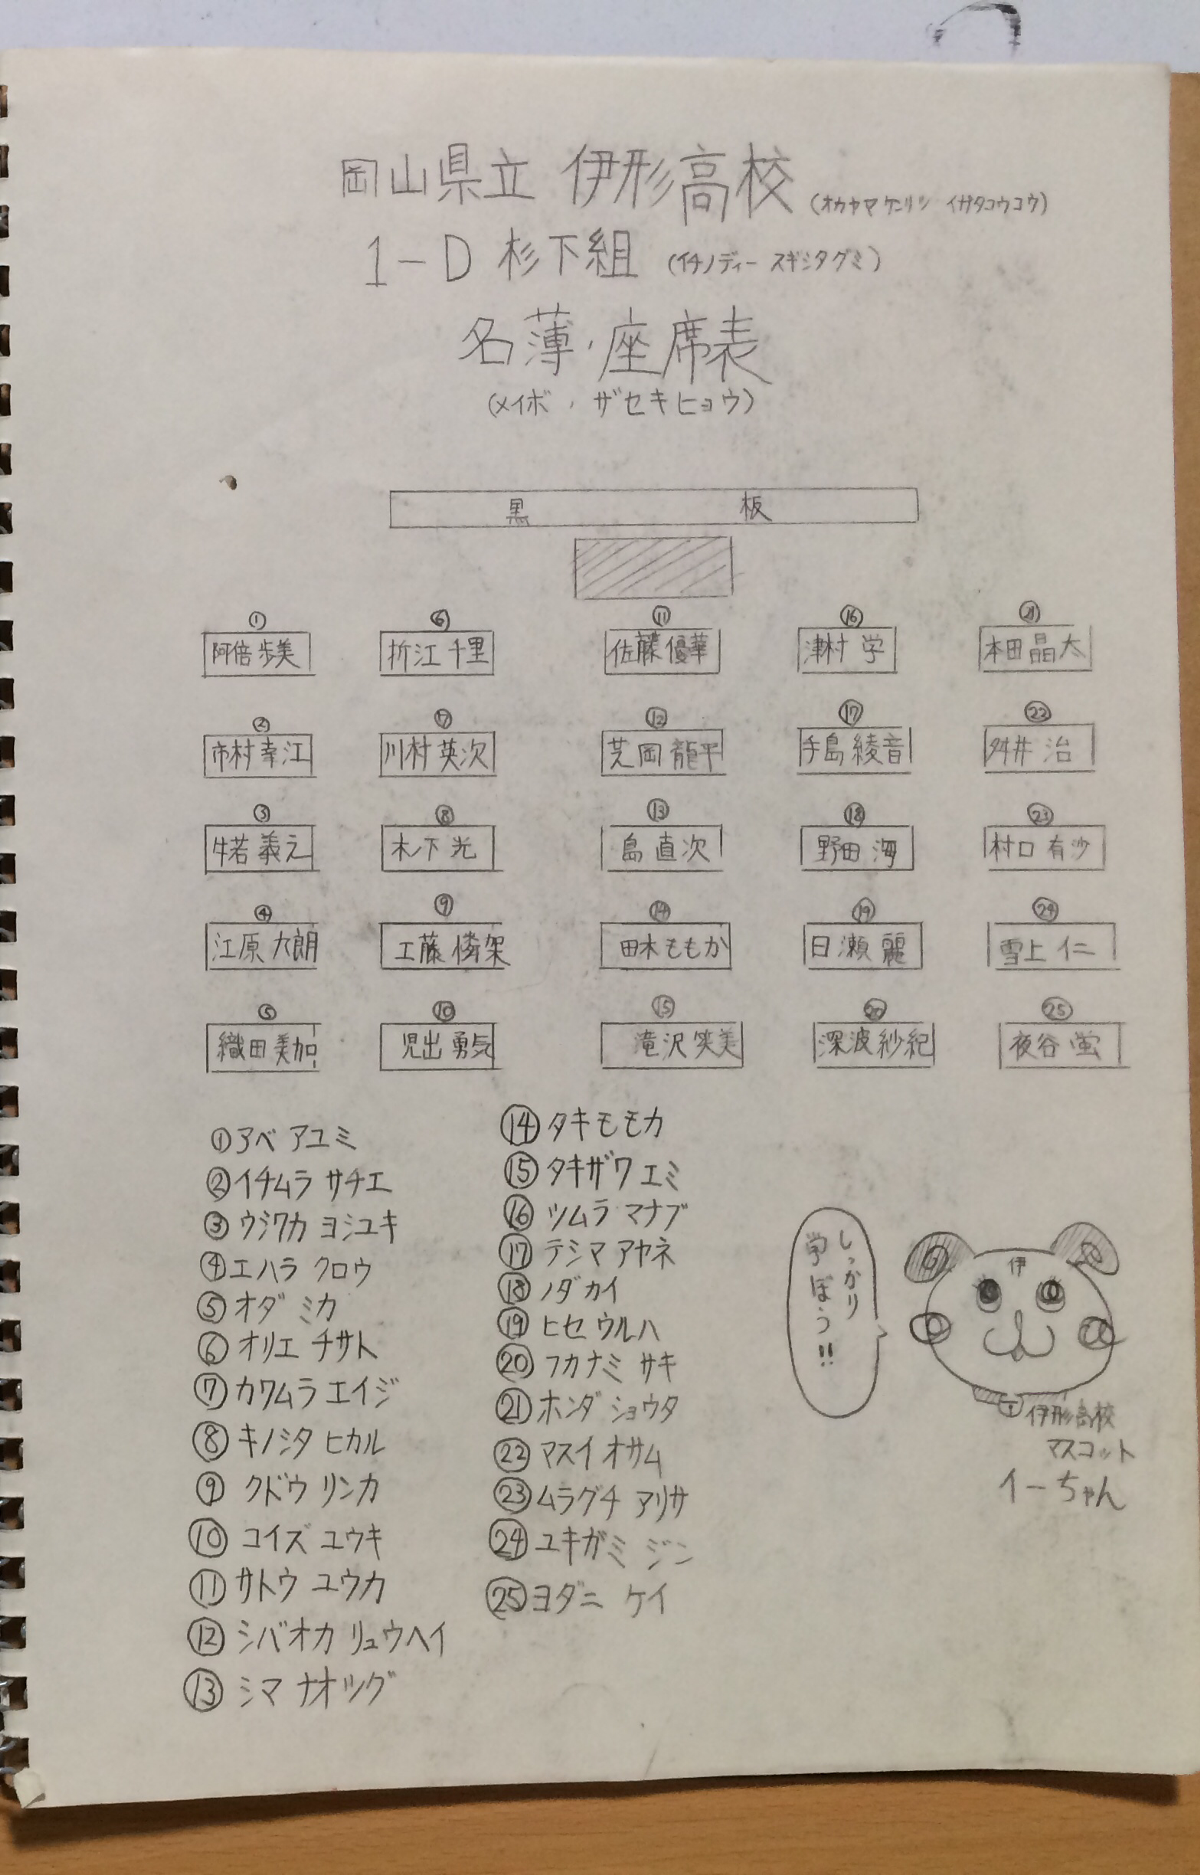 岡山県立 伊形高校 (オカヤマケンリツ イガタコウコウ)
1-D 杉下組 (イチノディー スギシタグミ)
名薄・座席表
(メイボ・ザセキヒョウ)
黒 板
① ⑥ ⑪ ⑯ ㉑
阿倍歩美 折江千里 佐藤優華 津村 学 本田晶太
② ⑦ ⑫ ⑰ ㉒
市村幸江 川村英次 芝岡龍平 手島綾音 舛井 治
③ ⑧ ⑬ ⑱ ㉓
牛若義之 木下 光 島直次 野田 海 村口有沙
④ ⑨ ⑭ ⑲ ㉔
江原九朗 工藤 架 田木ももか 日瀬 麗 雪上 仁
⑤ ⑩ ⑮ ⑳ ㉕
織田美加 児出勇気 滝沢笑美 深波紗紀 夜谷 蛍
①アベ アユミ
②イチムラ サチエ
③ウシワカ ヨシユキ
④エハラ クロウ
⑤オダ ミカ
⑥オリエ チサト
⑦カワムラ エイジ
⑧キノシタ ヒカル
⑨クドウ リンカ
⑩コイズ ユウキ
⑪サトウ ユウカ
⑫シバオカ リュウヘイ
⑬シマ ナオツグ
⑭タキモモカ
⑮タキザワ エミ
⑯ツムラ マナブ
⑰テシマ アヤネ
⑱ノダ カイ
⑲ヒセ ウルハ
⑳フカナミ サキ
㉑ホンダ ショウタ
㉒マスイ オサム
㉓ムラグチ アリサ
㉔ユキガミ ジン
㉕ヨダニ ケイ
しっかり
学ぼう!!
伊
伊形高校
マスコット
イーちゃん